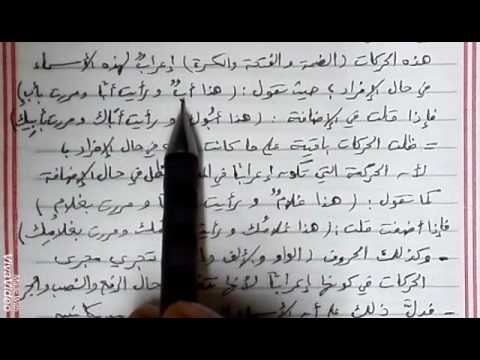 هذه الحركات (الضمة والفتحة والكسرة) إعرابٌ لهذه الأسماء
في حال الإفراد، حيث تقول: (هذا أبٌ ورأيت أبًا ومررت بأبٍ)
فإذا قلت في الإضافة: (هذا أبُوك ورأيت أبَاك ومررت بأبِيك)
- ظلت الحركات باقية على ما كانت في حال الإفراد،
لأن الحركة التي تكون إعرابًا في في حال الإضافة
كما تقول: (هذا غلامٌ ورأيت ومررت بغلامٍ)
فإذا أضفت قلت: (هذا غلامُك ورأيت ومررت بغلامِك)
- وكذلك الحروف (الواو والألف تجري مجرى
الحركات في كونها إعرابًا لأنها حال الرفع والنصب والجر
- فدلَّ ذلك على أن
VivaVideo